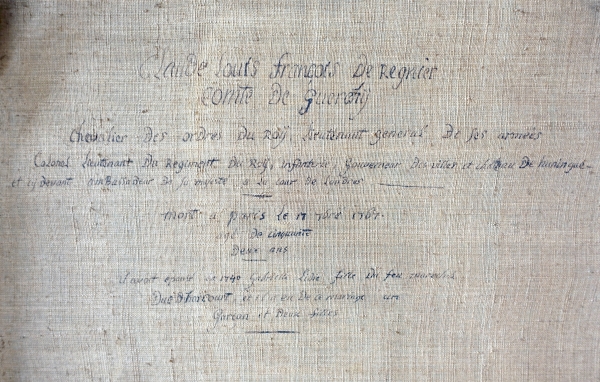 Claude Louis François De Regnier
Comte De Guerchÿ
Chevalier Des ordres Du Roÿ, Lieutenant general De ses armées
Colonel Lieutenant Du Regiment Du Roÿ, infanterie, Gouverneur Des villes et chateau De huningue
et cÿ devant Ambassadeur De sa majesté a la cour de Londres
mort a paris le 17 1767.
agé De cinquante
Deux ans
il avoit epousé en 1740 Gabrielle Lidie fille Du feu marechal
Duc D'harcourt, et il a eu De ce mariage un
Garçon et Deux filles